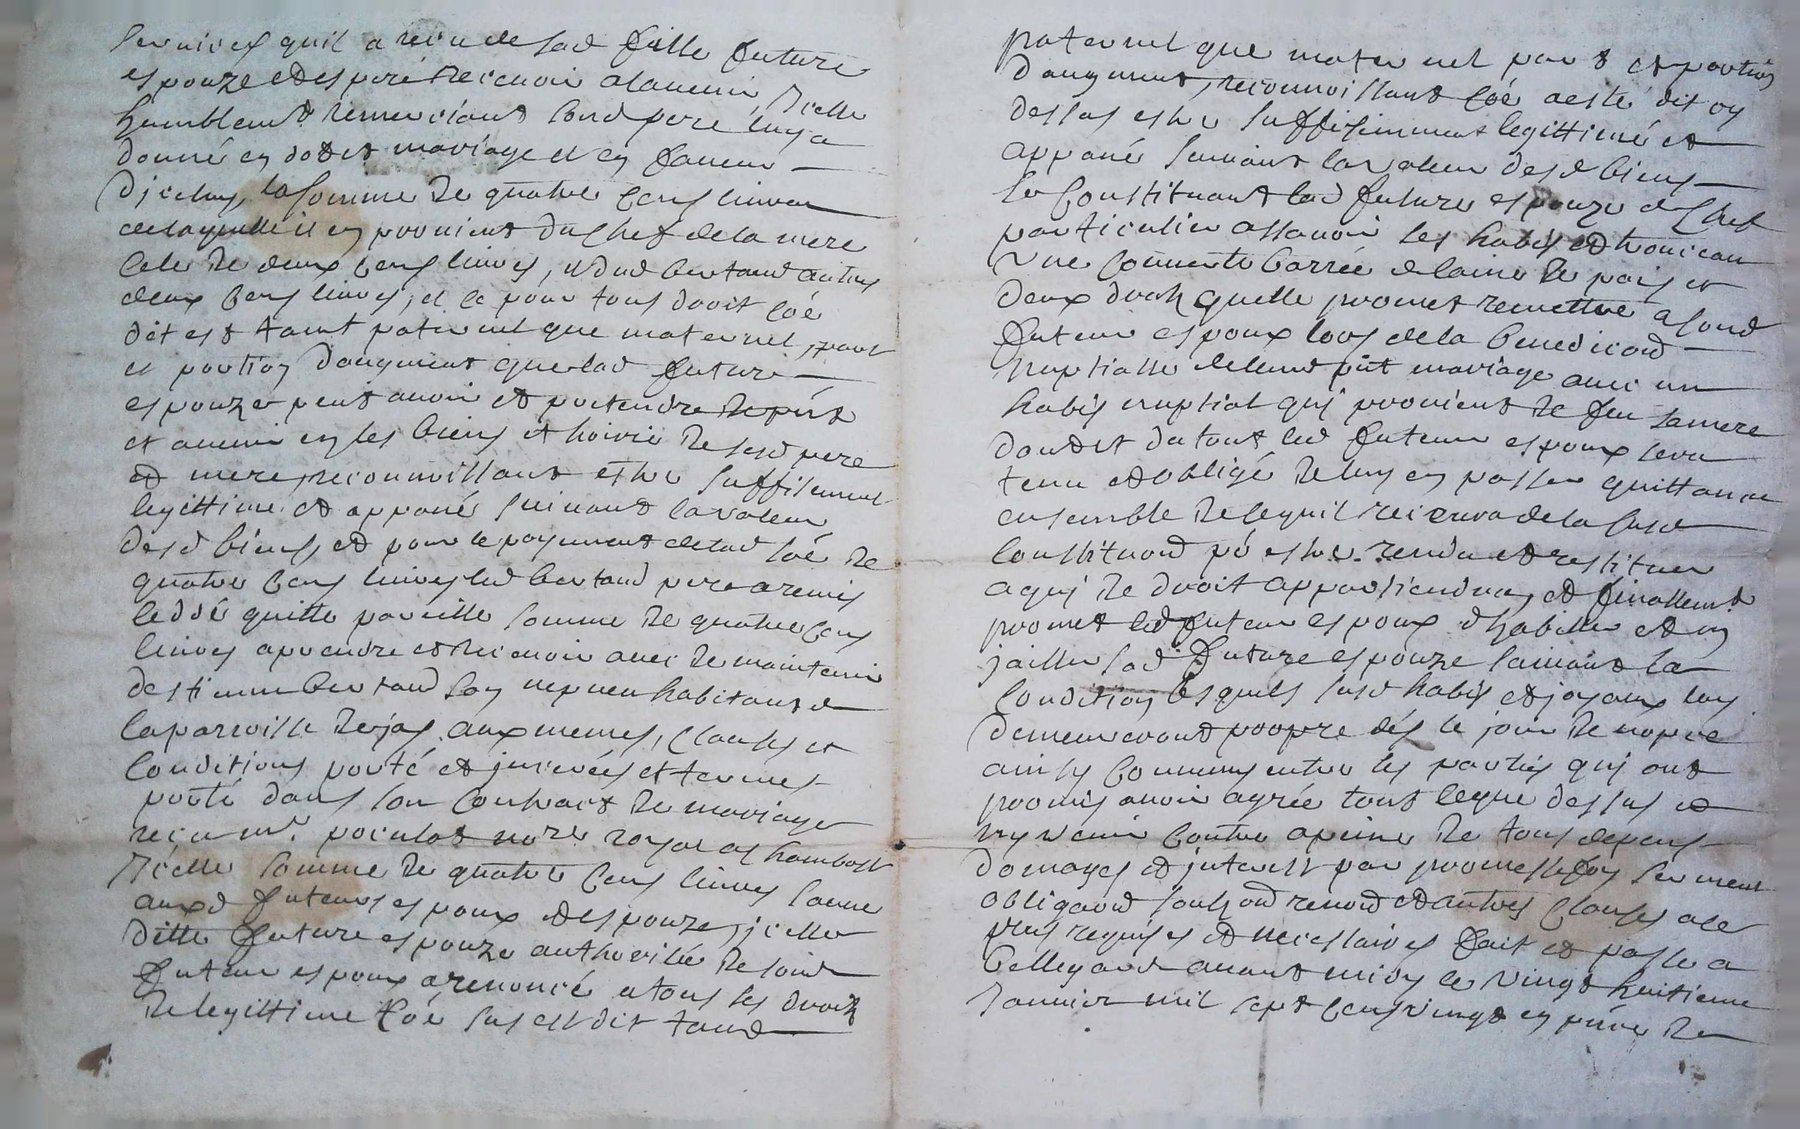 services quil a receu de sad fille future
espouze et espere recevoir aladvenir, Icelle
humblemt remerciant sond pere luy a
donné en dot et mariage et en faveur
dicelluy, la somme de quatre cens livres
de laquelle il en provient du chef de la mere
celle de deux cens livres, et dud bertaud autres
deux cens livres, et ce pour tous droit coe
dit est tant paternel que maternel, part
et portion daugment que lad future
espouze peut avoir et pretendre de pnt
et avenir en les biens et hoirie de sesd pere
et mere, reconnoissant estre suffisemment
legittime et appané suivant la valeur
desd biens, et pour le payement de lad soe de
quatre cens livres led bertaud pere a remis
led sé quitte pareille somme de quatre cens
livres a prendre et recevoir avec de maintenir
destienne bertaud son nepveu habitant de
la parroisse de jas, aux memes, clauses et
conditions porté et jnserées et termes
porté dans son contract de mariage
receu mr poculot nore royal a chambost
Icelle somme de quatre cens livres
auxd futeurs espoux et espouze, jcelle
ditte future espouze authorisée de sond
futeur espoux a renoncé a tous ses droits
de legittime coe sus est dit tant
paternel que maternel part et portion
daugment, reconnoissant coe a esté dit cy
dessus estre suffisemment legittimé et
appané suivant la valeur desd biens
se constituant lad future espouze de chef
particulier assavoir ses habis et trousseau
une couverte barrée de laine de pais et
deux draps quelle promet remettre a sond
futeur espoux lors de la benediction
nuptialle de leur pnt mariage avec un
habis nuptial quj provient de feu sa mere
dont et du tout led futeur espoux sera
tenu et obligé de luy en passer quittance
ensemble de ce quil recevra de la susd
constituaon po estre rendu et restitue
a quj de droit appartiendra, et finallemt
promet led futeur espoux dhabiller et en
jailler sad future espouze suivant sa
condition lesquels susd habis et joyaux luy
demeureront propre dés le jour de nopce
ainsy convenu entre les parties quj ont
promis avoir agrée tout ceque dessus et
ny venir contre a peine de tous depens
domages et jnterest par promesse foy serment
obligaon soubzon renon et autres clauses a ce
plus requises et necessaires fait et passé a
bellegarde avant midy le vingt huitieme
Janvier mil sept cens vingt en pnce de